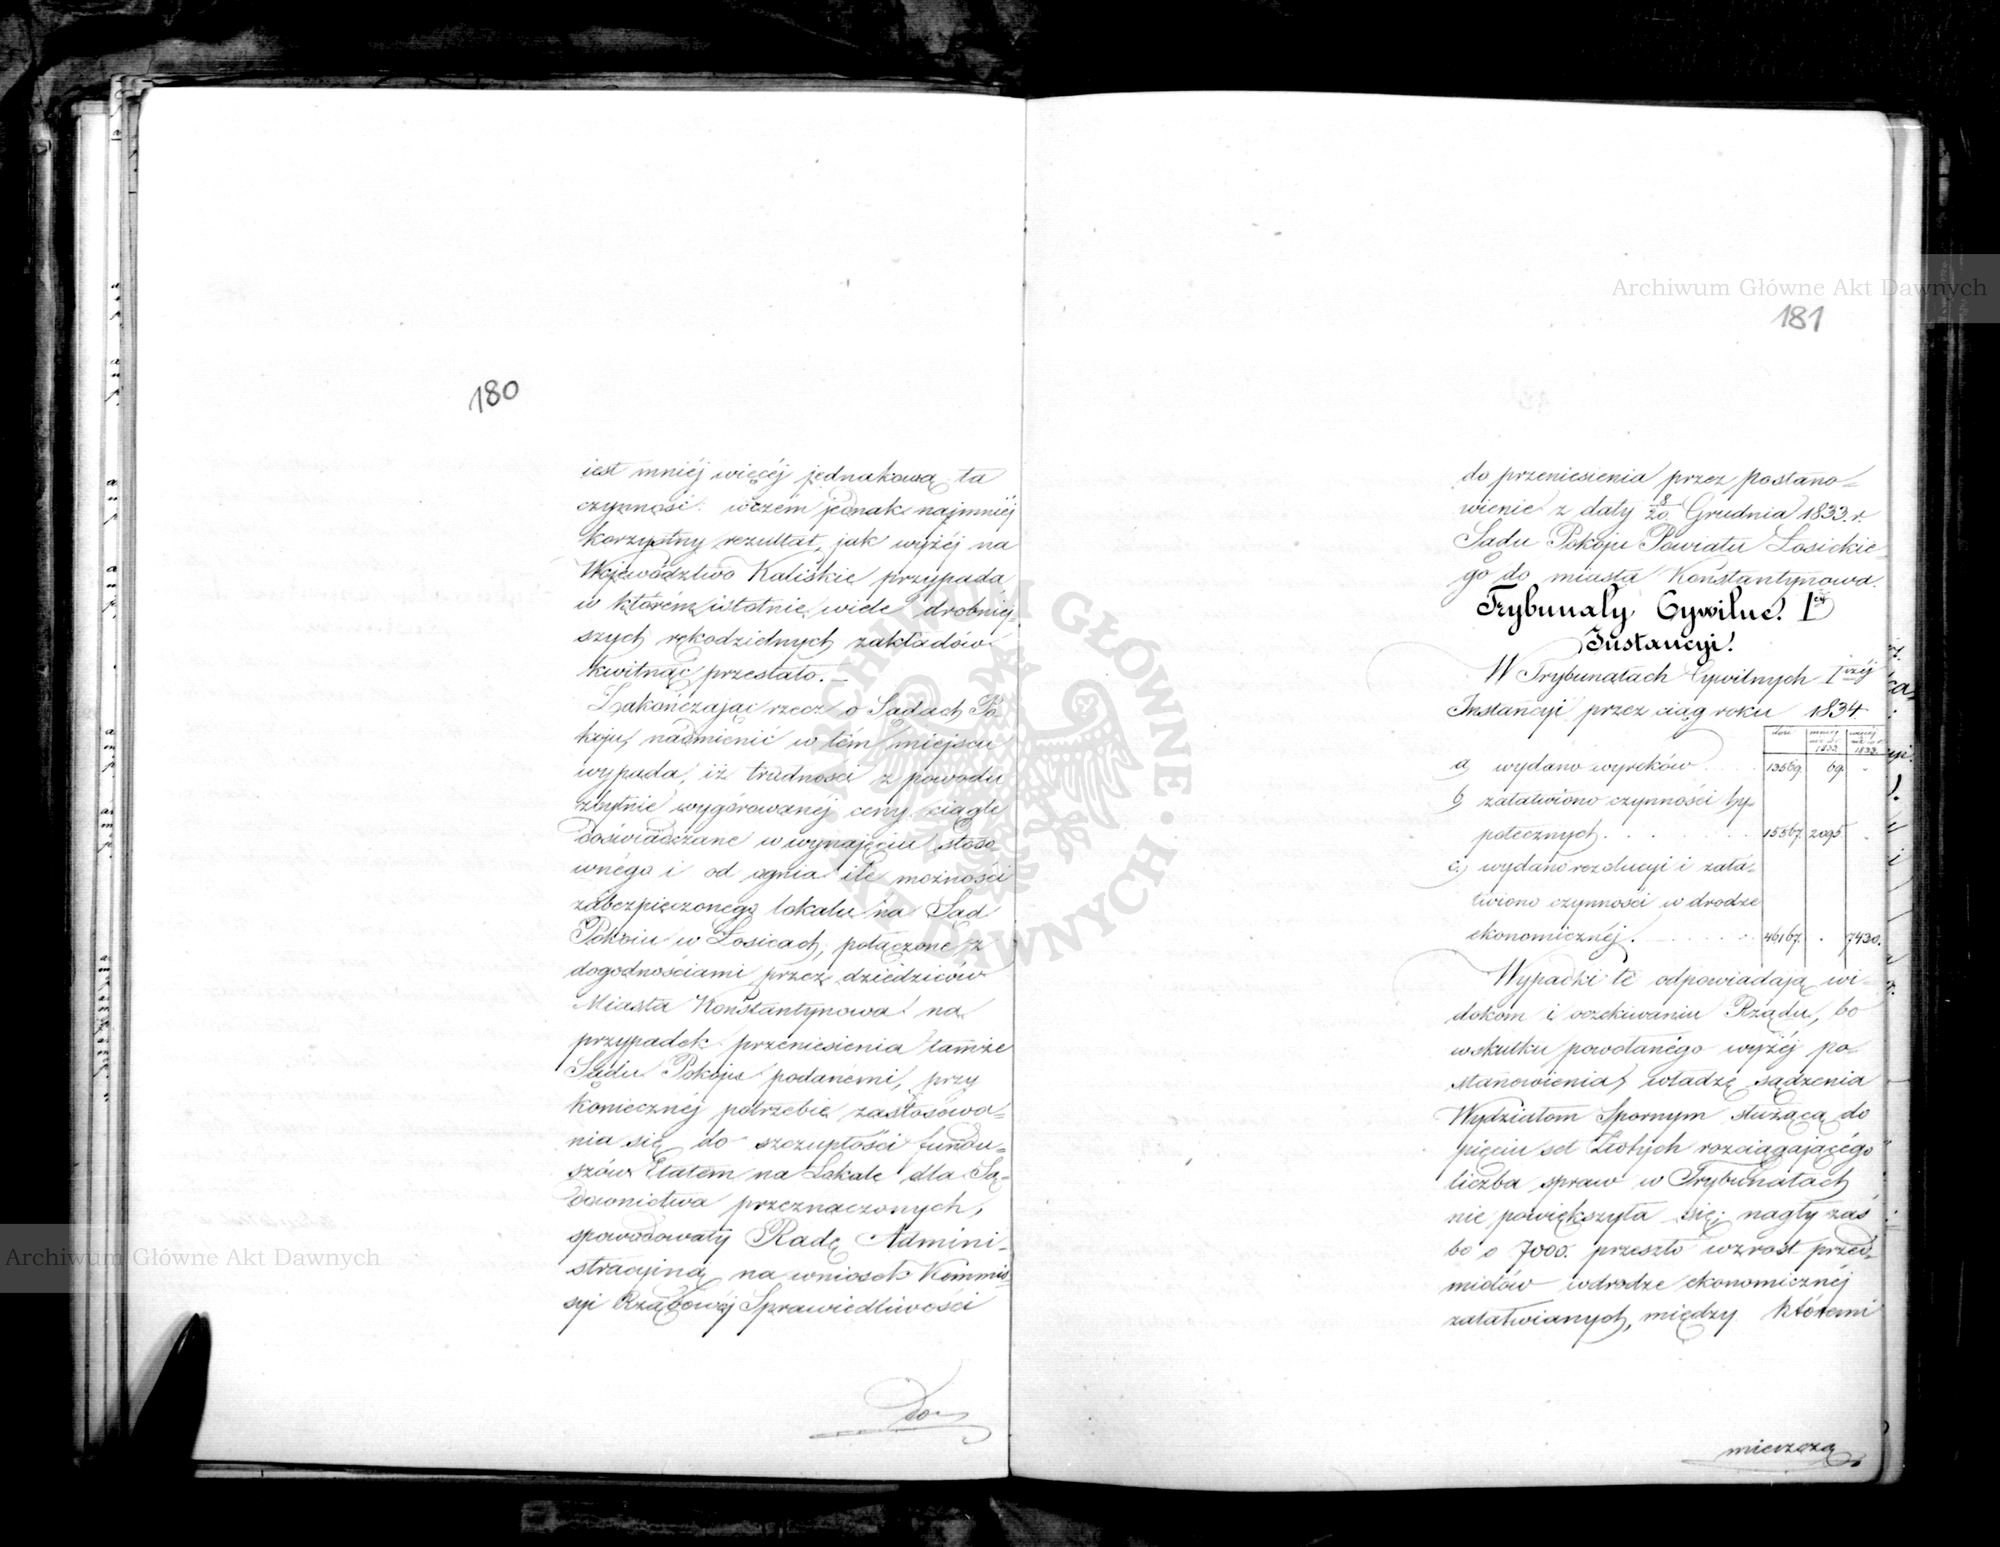 180
iest mniéj więcéj jednakową ta
czynność. wczém jednak najmniéj
korzystny rezultat, jak wyżéj na
Województwo Kaliskie przypada
w którém istotnie wiele drobniej-
szych rękodzielnych zakładów
kwitnąć przestało. —
Zakończając rzecz o Sadach Po
koju, nadmienić w tém miejscu
wypada, iż trudności z powodu
zbytnie wygórowanéj ceny ciągle
doświadczane w wynajęciu stoso
wnégo i od ognia ile możności
zabezpieczonego lokalu na Sąd
Pokoiu w Łosicach, połączone z
dogodnościami przez dziedziców
Miasta Konstantynowa na
przypadek przeniesienia tamże
Sądu Pokoju podanémi, przy
koniecznéj potrzebie zastosowa-
nia się do szczupłości fundu-
szów Etatem na Lokale dla Są-
downictwa przeznaczonych,
spowodowały Radę Admini-
stracyiną na wniosek Kommis-
syi Rządowéj Sprawiedliwości
do
181
do przeniesienia przez postano-
wienie z daty 8/20 Grudnia 1833. r.
Sadu Pokoju Powiatu Łosickie-
go do miasta Konstantynowa.
Trybunały Cywilne. Iéj
Instancyi.
W Trybunałach Cywilnych Iszéj
Instancyi przez ciąg roku 1834
ilość mniéj niż w r. 1833 więcéj niż w r. 1833.
a, wydano wyroków . . . 13569. 69. -
b, załatwiono czynności hy-
potecznych. . . . . 15567. 2095 .
c.) wydano rezolucyi i zała-
twiono czynności w drodze
ekonomicznéj. . . . . 46167. . 7430.
Wypadki te odpowiadają wi-
dokom i oczekiwaniu Rządu, bo
wskutku powołanégo wyżéj po-
stanowienia, władzę sądzenia
Wydziałom Spornym służącą do
pięciu set Złotych rozciągającégo
liczba spraw w Trybunałach
nie powiększyła się; nagły zaś
bo o 7000. przeszło wzrost przed-
miotów wdrodze ekonomicznéj
załatwianych, między któremi
mieszczą
Archiwum Główne Akt Dawnych
Archiwum Główne Akt Dawnych
ARCHIWUM GŁÓWNE AKT DAWNYCH